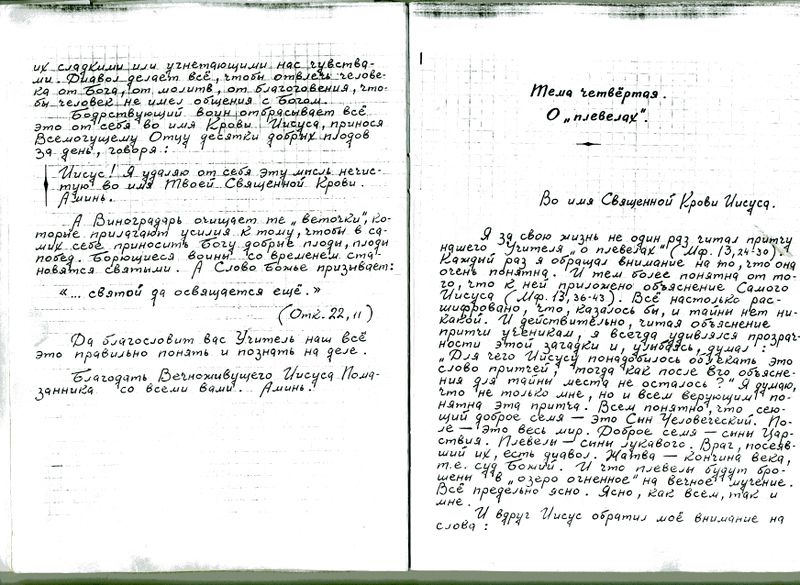 их сладкими или угнетающими нас чувства-
ми. Диавол делает всё, чтобы отвлечь челове-
ка от Бога, от молитв, от благоговения, что-
бы человек не имел общения с Богом.
Бодрствующий воин отбрасывает всё
это от себя во имя Крови Иисуса, принося
Всемогущему Отцу десятки добрых плодов
за день, говоря:
Иисус! Я удаляю от себя эту мысль нечис-
тую во имя Твоей Священной Крови.
Аминь.
А Виноградарь очищает те „веточки", ко-
торые прилагают усилия к тому, чтобы в са-
мих себе приносить Богу добрые плоды, плоды
побед. Борющиеся воины со временем ста-
новятся святыми. А Слово Божье призывает:
«... святой да освящается ещё.»
(Отк. 22, 11)
Да благословит вас Учитель наш всё
это правильно понять и познать на деле.
Благодать Вечноживущего Иисуса Пома-
занника со всеми вами. Аминь.
Тема четвёртая.
О „плевелах".
Во имя Священной Крови Иисуса.
Я за свою жизнь не один раз читал притчу
нашего Учителя „о плевелах" (Мф. 13, 24-30).
Каждый раз я обращал внимание на то, что она
очень понятна. И тем более понятна от то-
го, что к ней приложено объяснение Самого
Иисуса (Мф. 13, 36-43). Всё настолько рас-
шифровано, что, казалось бы, и тайны нет ни-
какой. И действительно, читая объяснение
притчи ученикам, я всегда удивлялся прозрач-
ности этой загадки и, улыбаясь, думал:
„Для чего Иисусу понадобилось облекать это
слово притчей, тогда как после Его объясне-
ния для тайны места не осталось?" Я думаю,
что не только мне, но и всем верующим по-
нятна эта притча. Всем понятно, что сею-
щий доброе семя — это Сын Человеческий. По-
ле — это весь мир. Доброе семя — сыны Цар-
ствия. Плевелы — сыны лукавого. Враг, посеяв-
ший их, есть диавол. Жатва — кончина века,
т.е. суд Божий. И что плевелы будут бро-
шены в „озеро огненное" на вечное мучение.
Всё предельно ясно. Ясно, как всем, так и
мне.
И вдруг Иисус обратил моё внимание на
слова: